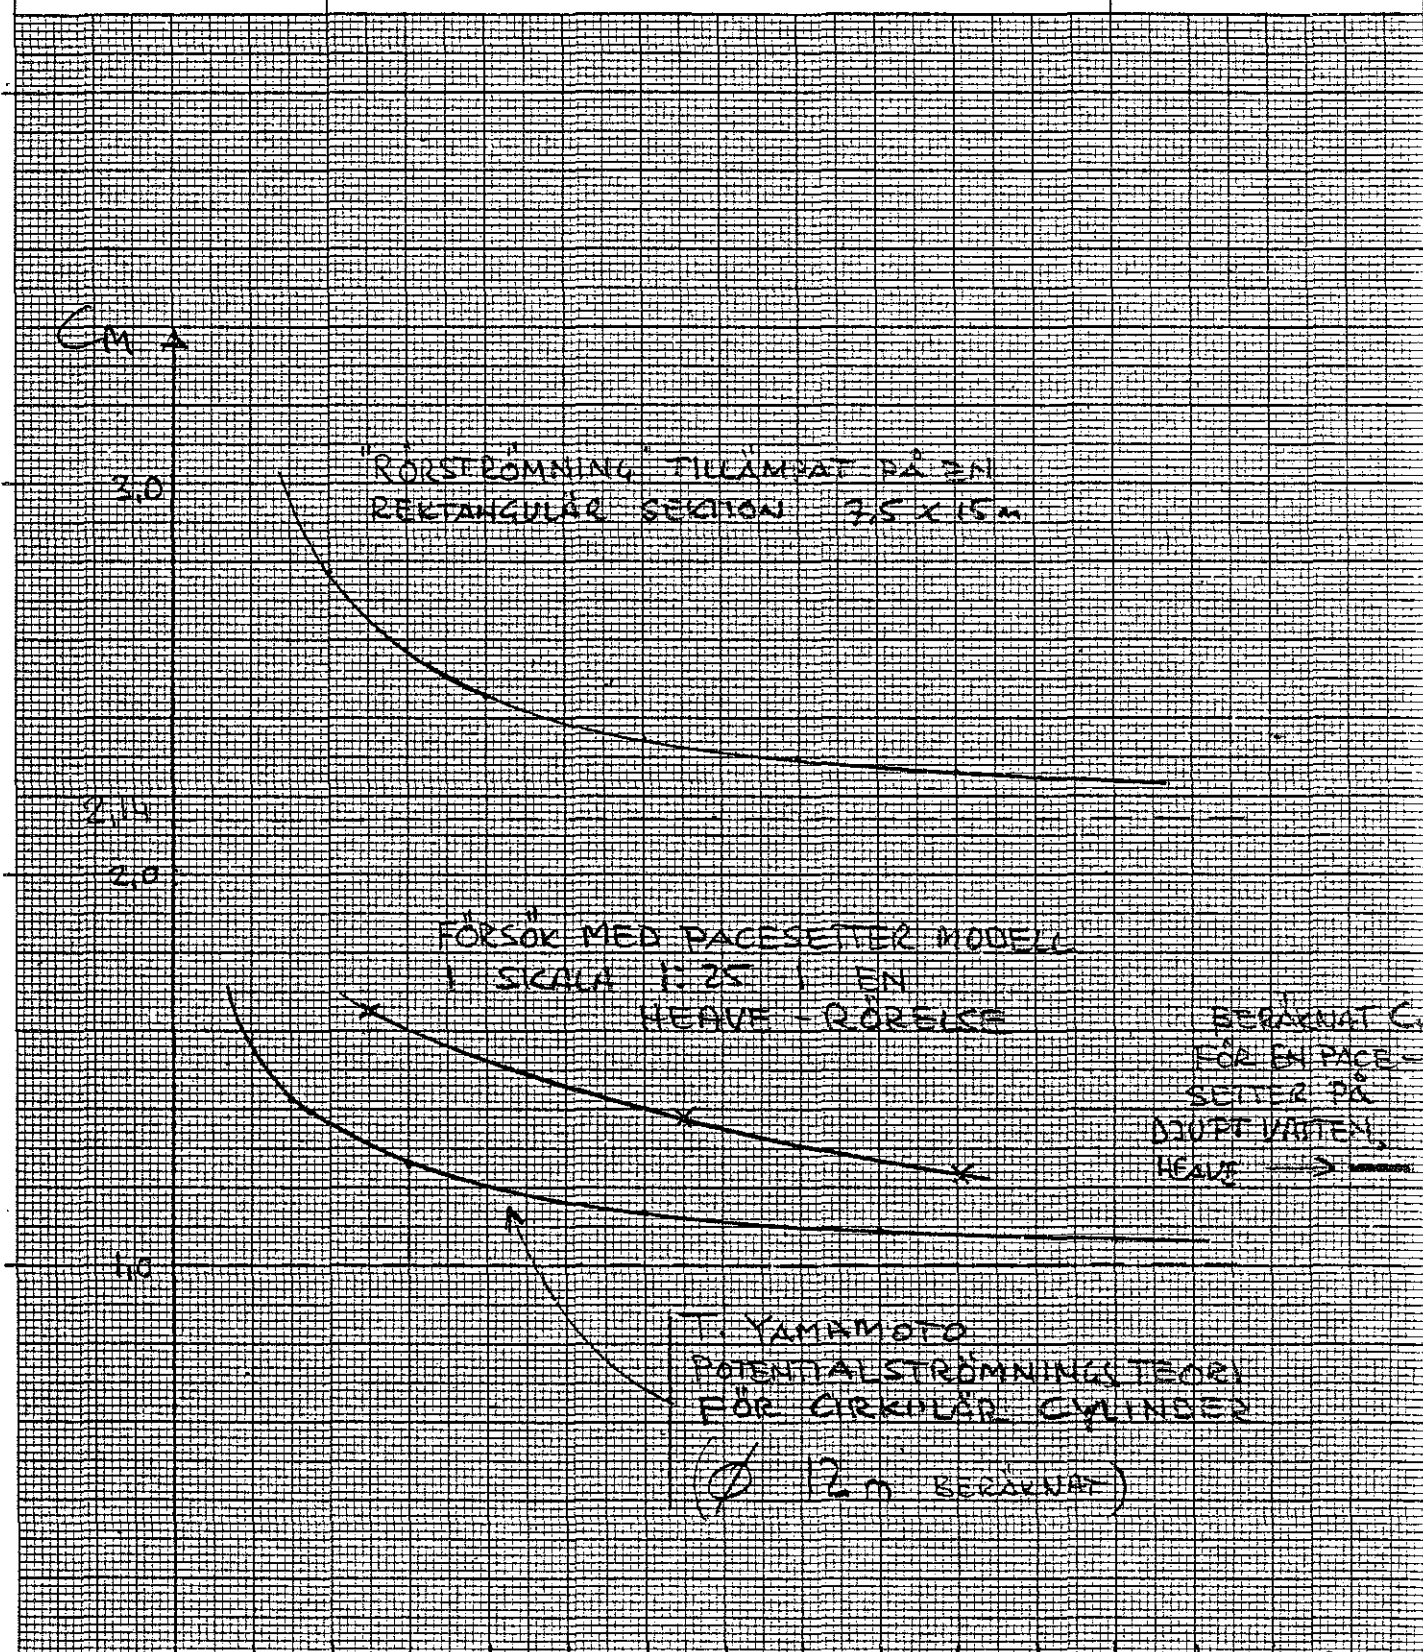 CM
"RÖRSTRÖMNING" TILLÄMPAT PÅ EN
3,0
REKTANGULÄR SEKTION 7,5 x 15 m
2,14
2,0
FÖRSÖK MED PACESETTER MODELL
I SKALA 1:25 I EN
HEAVE - RÖRELSE
BERÄKNAT C
FÖR EN PACE-
SETTER PÅ
DJUPT VATTEN,
HEAVE
1,0
T. YAMAMOTO
POTENTIALSTRÖMNINGSTEORI
FÖR CIRKULÄR CYLINDER
(Ø 12 m BERÄKNAT)